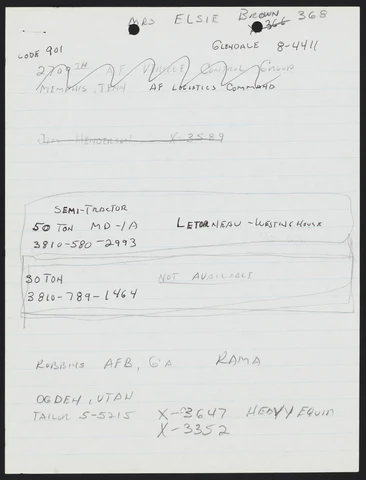 MRS ELSIE BROWN 368
X 366
CODE 901
GLENDALE 8-4411
2709TH AF VEHICLE CONTROL GROUP
MEMPHIS, TENN AF LOGISTICS COMMAND
JIM HENDERSON X-3589
SEMI-TRACTOR
50 TON MD-1A LETORNEAU-WESTINGHOUSE
3810-580-2993
30 TON NOT AVAILABLE
3810-789-1464
ROBBINS AFB, GA RAMA
OGDEN, UTAH
TAILOR 5-5215 X-3647 HEAVY EQUIP
X-3352